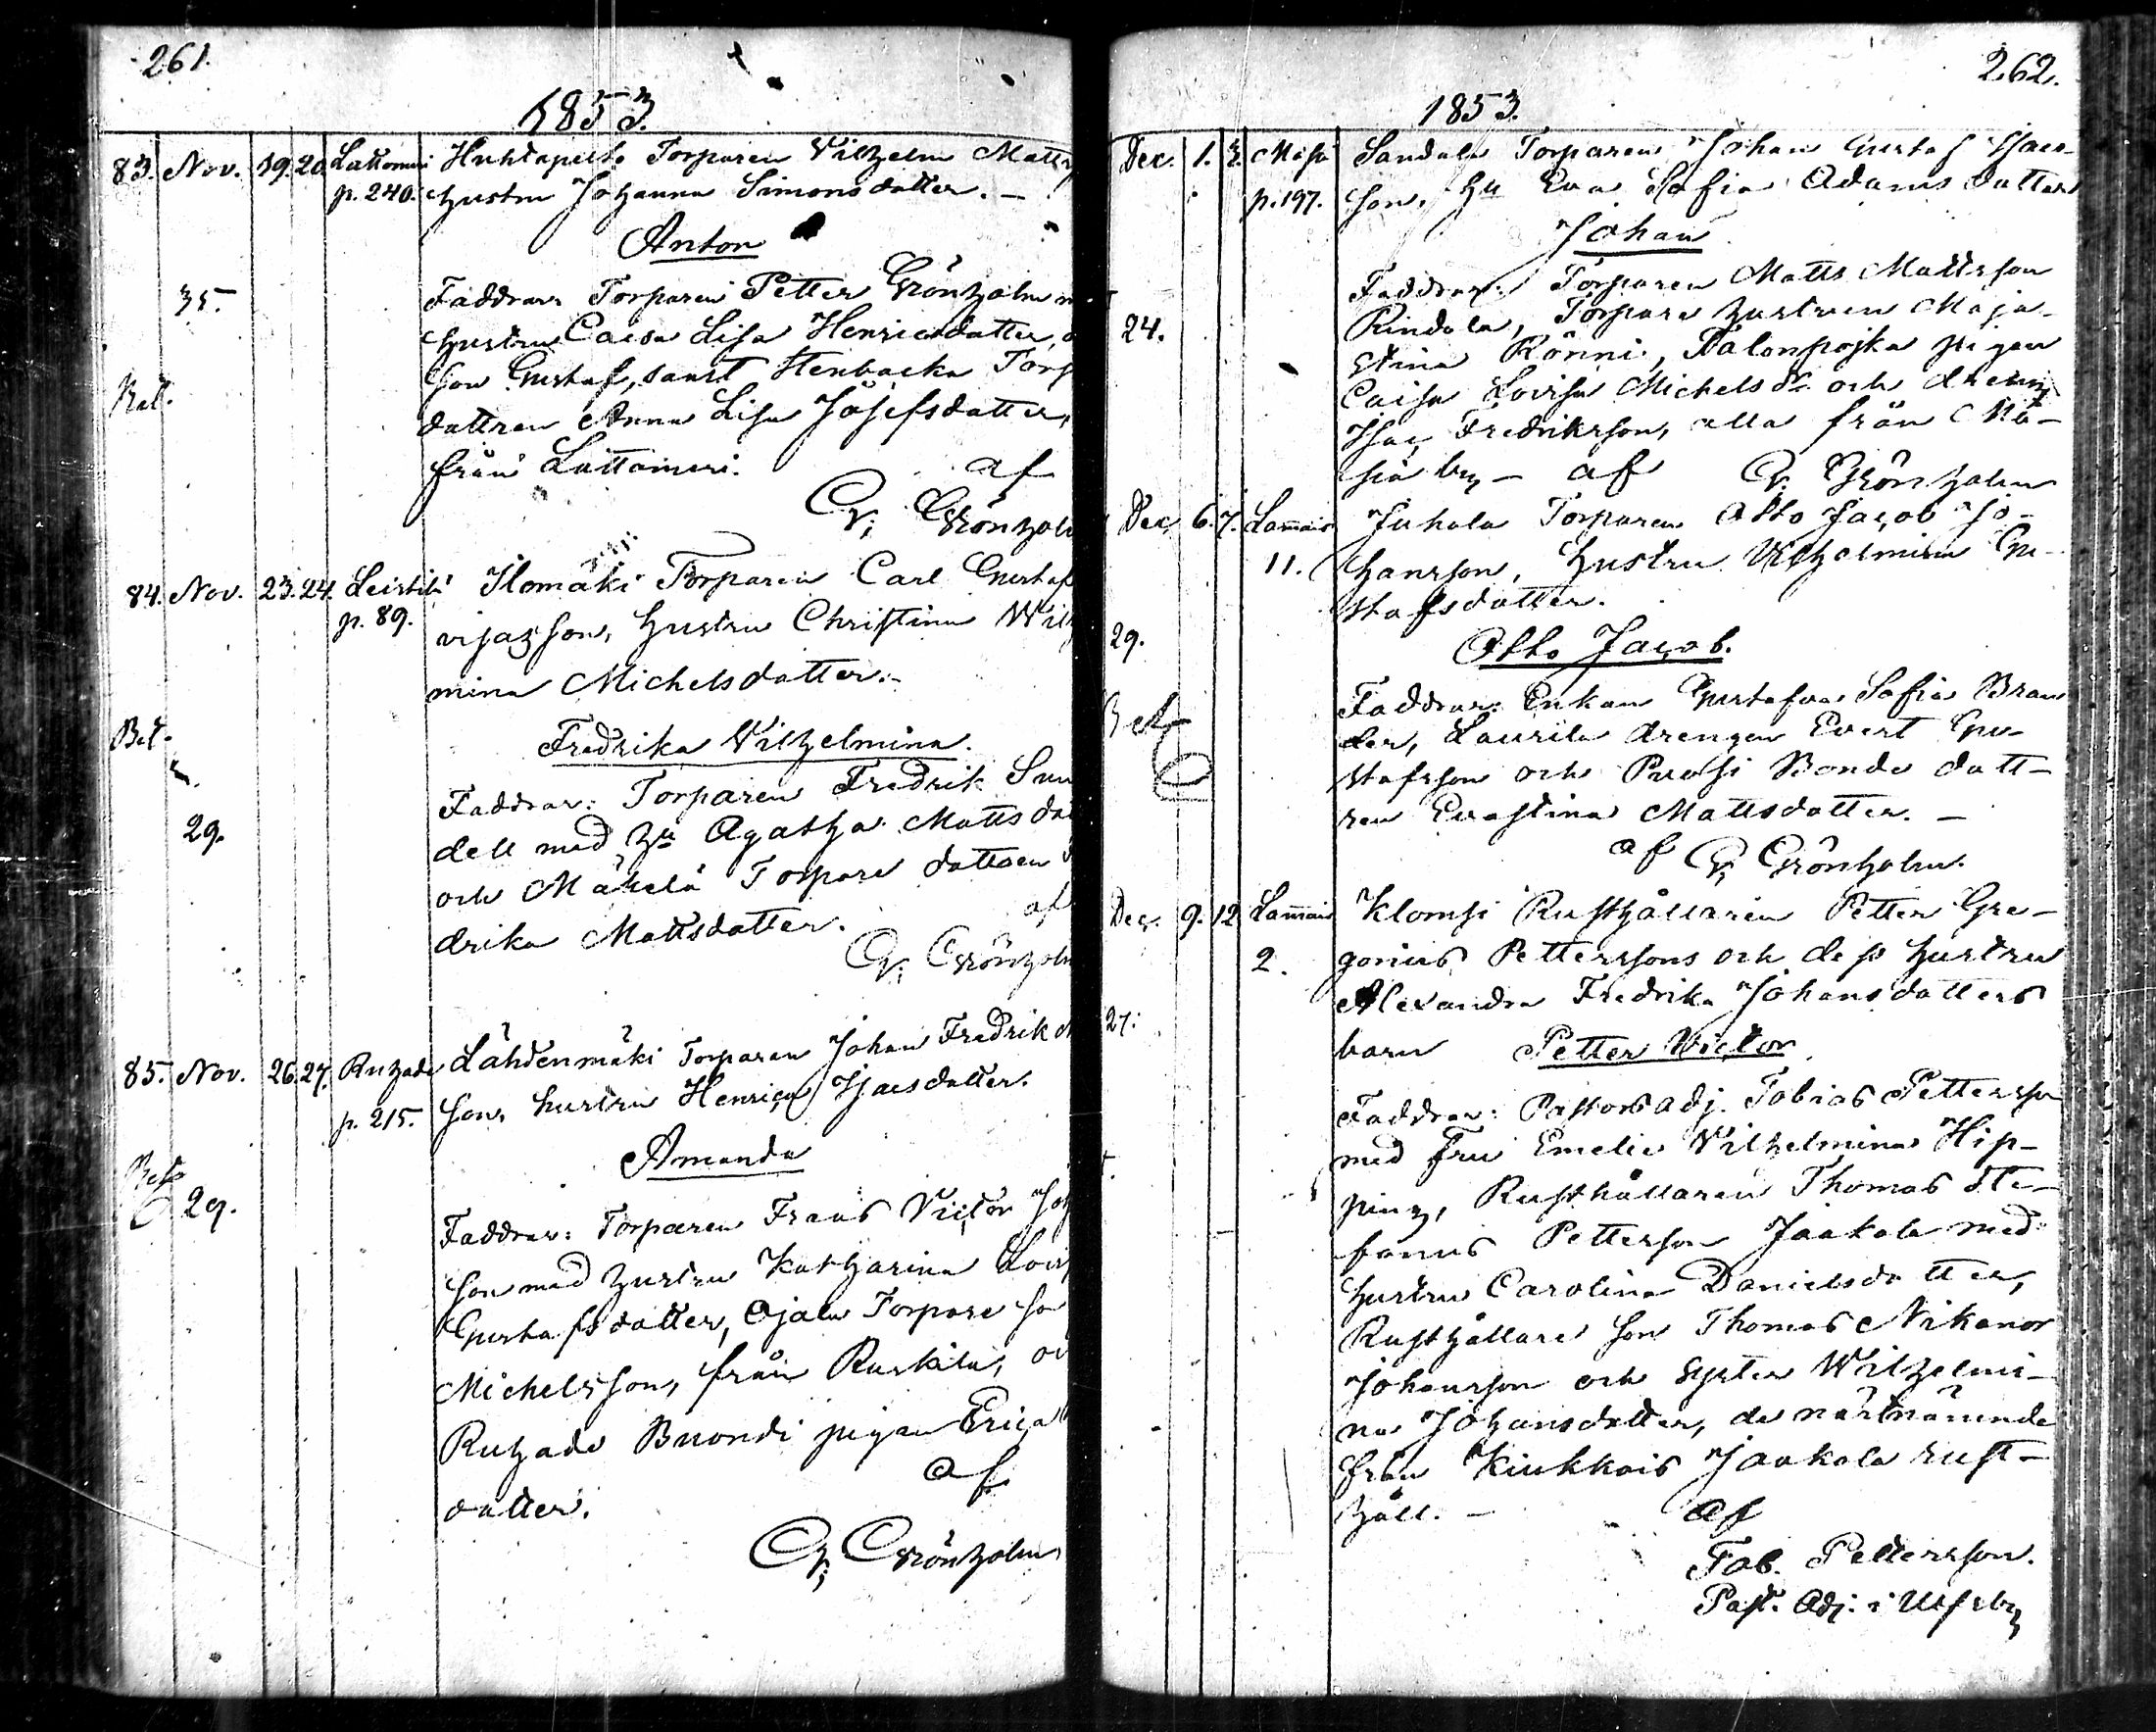 261.
1853.
83. Nov. 19. 20. Lattomeri Huhtapelto Torparen Vilhelm Matts
p. 240. hustru Johanna Simonsdatter. –
Anton
35. Faddrar: Torparen Petter Grönholm m
hustru Caisa Lisa Henricsdatter,
Bet. son Gustaf, samt Stenbacka Torp
dattren Anna Lisa Josefsdatter,
från Lattomeri. af
Grönholm
84. Nov. 23. 24. Leistilä Ilomäki Torparen Carl Gustaf
p. 89. hustru Christina Wilh
mina Michelsdatter. –
Bet. Fredrika Vilhelmina.
Faddrar: Torparen Fredrik Sun
29. dell med hu Agatha Mattsdat
och Mäkelä Torpare dattren
drika Mattsdatter. af
Grönholm
85. Nov. 26. 27. Ruhade Lähdenmäki Torparen Johan Fredrik
p. 215. son, hustru Henrica Isacsdatter.
Amanda
29. Faddrar: Torparen Frans Victor Joh
son med hustru Katharina Lovis
Gustafsdatter, Ojala Torpare son
Michelsson, från Ruskila, oc
Ruhade Buondi pigan Erica
datter. af
Grönholm
262.
1853.
Dec. 1. 3. Sandala Torparen Johan Gustaf Isacs-
p. 197. son, hu Eva Sofia Adamsdatter
Johan
Faddrar: Torparen Matts Mattsson
24. Rindala, Torpare hustrun Maja
Stina Rönni, Palonpojka pigan
Caisa Lovisa Michelsdr och drengen
Isac Fredriksson, alla från
by – af Grönholm
Dec. 6. 7. Lammais Juhola Torparen Otto Jacob Jo-
11. hansson, hustru Vilhelmina Gu-
stafsdatter.
29. Otto Jacob.
Bet Faddrar: Enkan Gustafva Sofia Bran
der, Laurila drengen Evert Gu-
stafsson och Puosi Bonde datt-
ren Evastina Mattsdatter. –
af Grönholm.
Dec. 9. 12. Lammais Klomsi Rusthållaren Petter Gre-
2. gorius Petterssons och dess hustru
Alexandra Fredrika Johansdatters
27. barn Petter Victor
Faddrar: Pastors adj. Tobias Pettersson
med Fru Emelie Vilhelmina Hip-
ping, Rusthållaren Thomas Ste-
fanus Pettersson Jaakola med
hustru Carolina Danielsdatter,
Rusthållare son Thomas Nikanor
Johansson och syster Wilhelmi-
na Johansdatter, de närnämnde
från Kiukkais Jaakola rust-
håll. – af
Tob. Pettersson.
Past. Adj. i Ulfsby